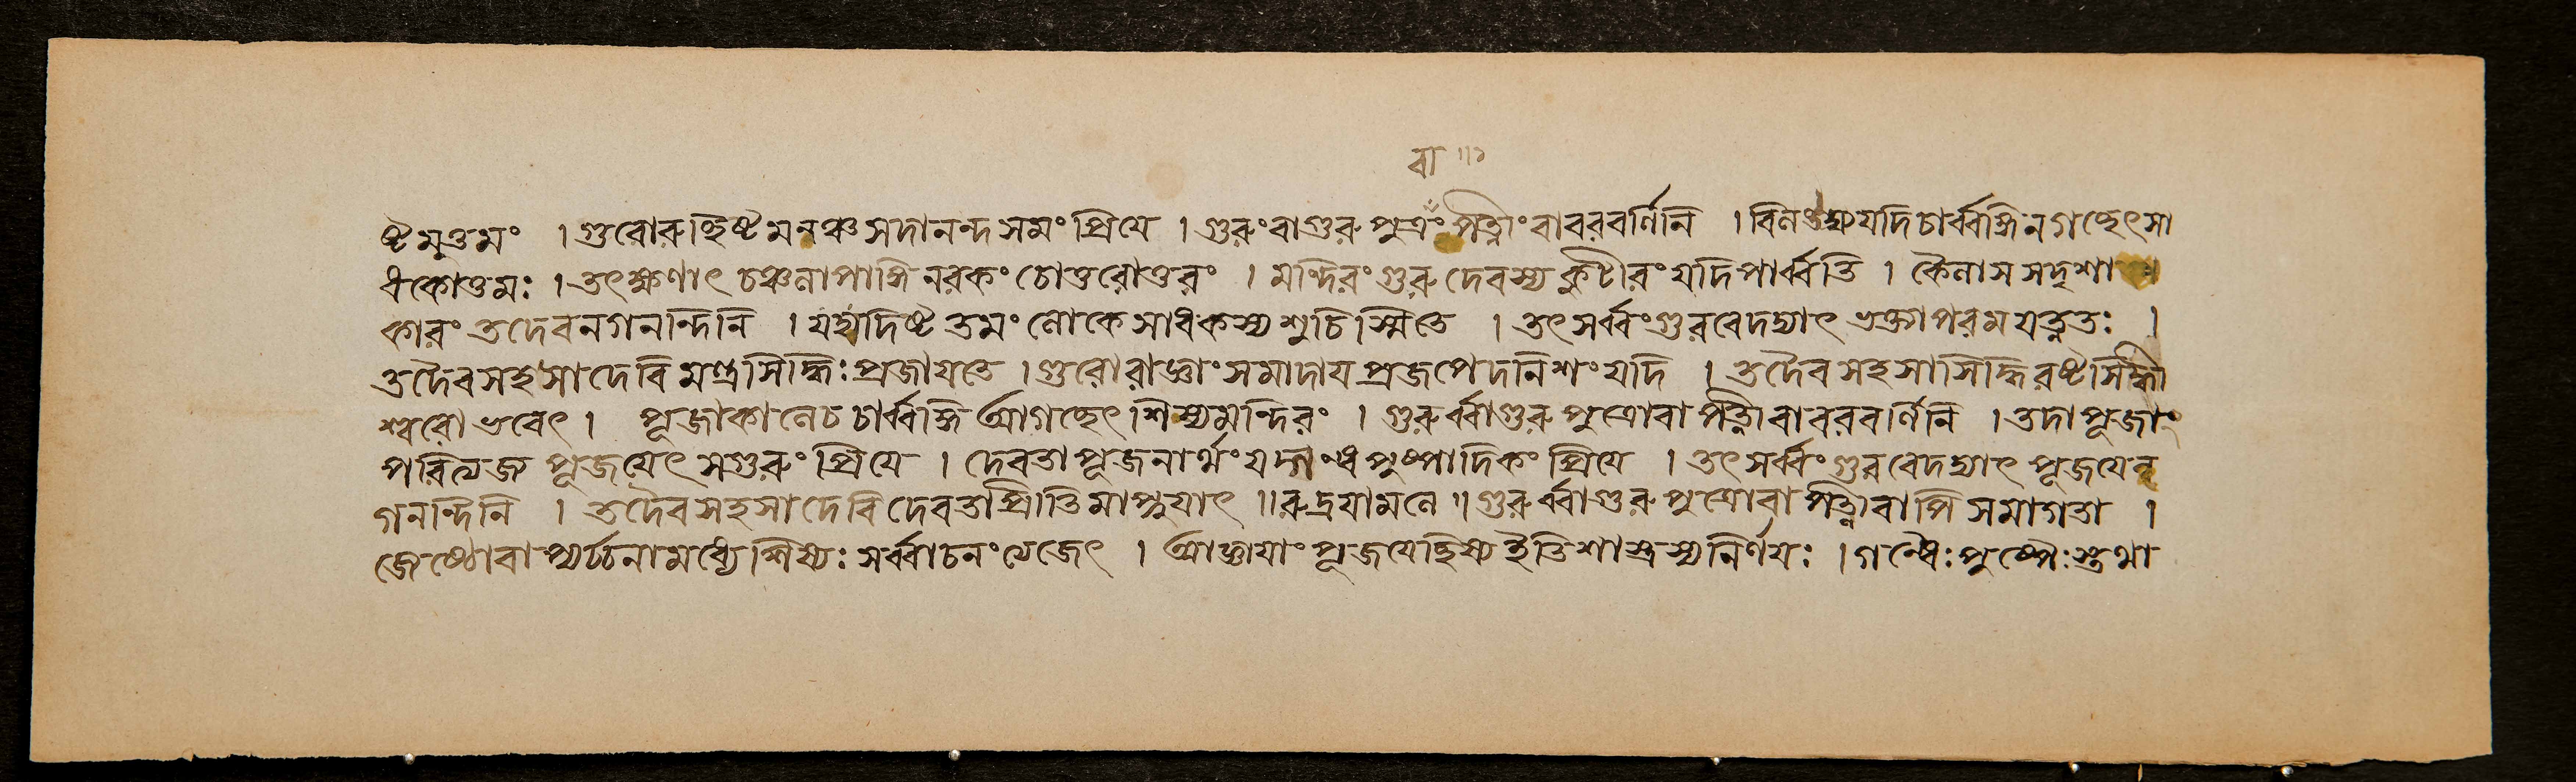 বা ॥১
ষ্টমুত্তমং । গুরোরুচ্ছিষ্টমন্নঞ্চসদানন্দসমংপ্রিযে । গুরুংবাগুরুপুত্রংপত্নীংবাবরবর্ণিনি । যদিচার্ব্বঙ্গিনগচ্ছেৎসা
ধকোত্তমঃ । তৎক্ষণাৎ চঞ্চলাপাঙ্গিনরকংচোত্তরোত্তরং । মন্দিরংগুরুদেবস্যকুটীরংযদিপার্ব্বতি । কৈলাসসদৃশা
কারংতদেবনগনন্দিনি । যদ্যদিষ্টতমংলোকেসাধকস্যশুচিস্মিতে । তৎসর্ব্বংগুরবেদদ্যাৎভক্ত্যাপরমযত্নতঃ ।
তদৈবসহসাদেবিমন্ত্রসিদ্ধিঃপ্রজাযতে । গুরোরাজ্ঞাংসমাদাযপ্রজপেদনিশংযদি । তদৈবসহসাসিদ্ধিরষ্টসিদ্ধী
শ্বরোভবেৎ । পূজাকালেচচার্ব্বঙ্গিআগচ্ছেৎশিষ্যমন্দিরং । গুরুর্ব্বাগুরুপুত্রোবাপত্নীবাবরবর্ণিনি । তদাপূজাং
পরিত্যজ্যপূজযেৎসগুরুংপ্রিযে । দেবতাপূজনার্থংযদ্গংধপুষ্পাদিকংপ্রিযে । তৎসর্ব্বংগুরবেদদ্যাৎপূজযেন্ন
গনন্দিনি । তদৈবসহসাদেবিদেবতাপ্রীতিমাপ্নুযাৎ ॥ রুদ্রযামলে ॥ গুরুর্ব্বাগুরুপুত্রোবাপত্নীবাপিসমাগতা ।
জেষ্ঠোবাপ্যর্চ্চনামধ্যেশিষ্যঃসর্ব্বার্চনংত্যেজেৎ । আজ্ঞাযাংপূজযেচ্ছিষ্যইতিশাস্ত্রস্যনির্ণযঃ । গন্ধৈঃপুষ্পৈঃস্তথা